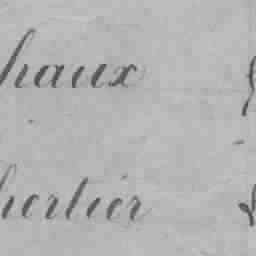 haux
hertier